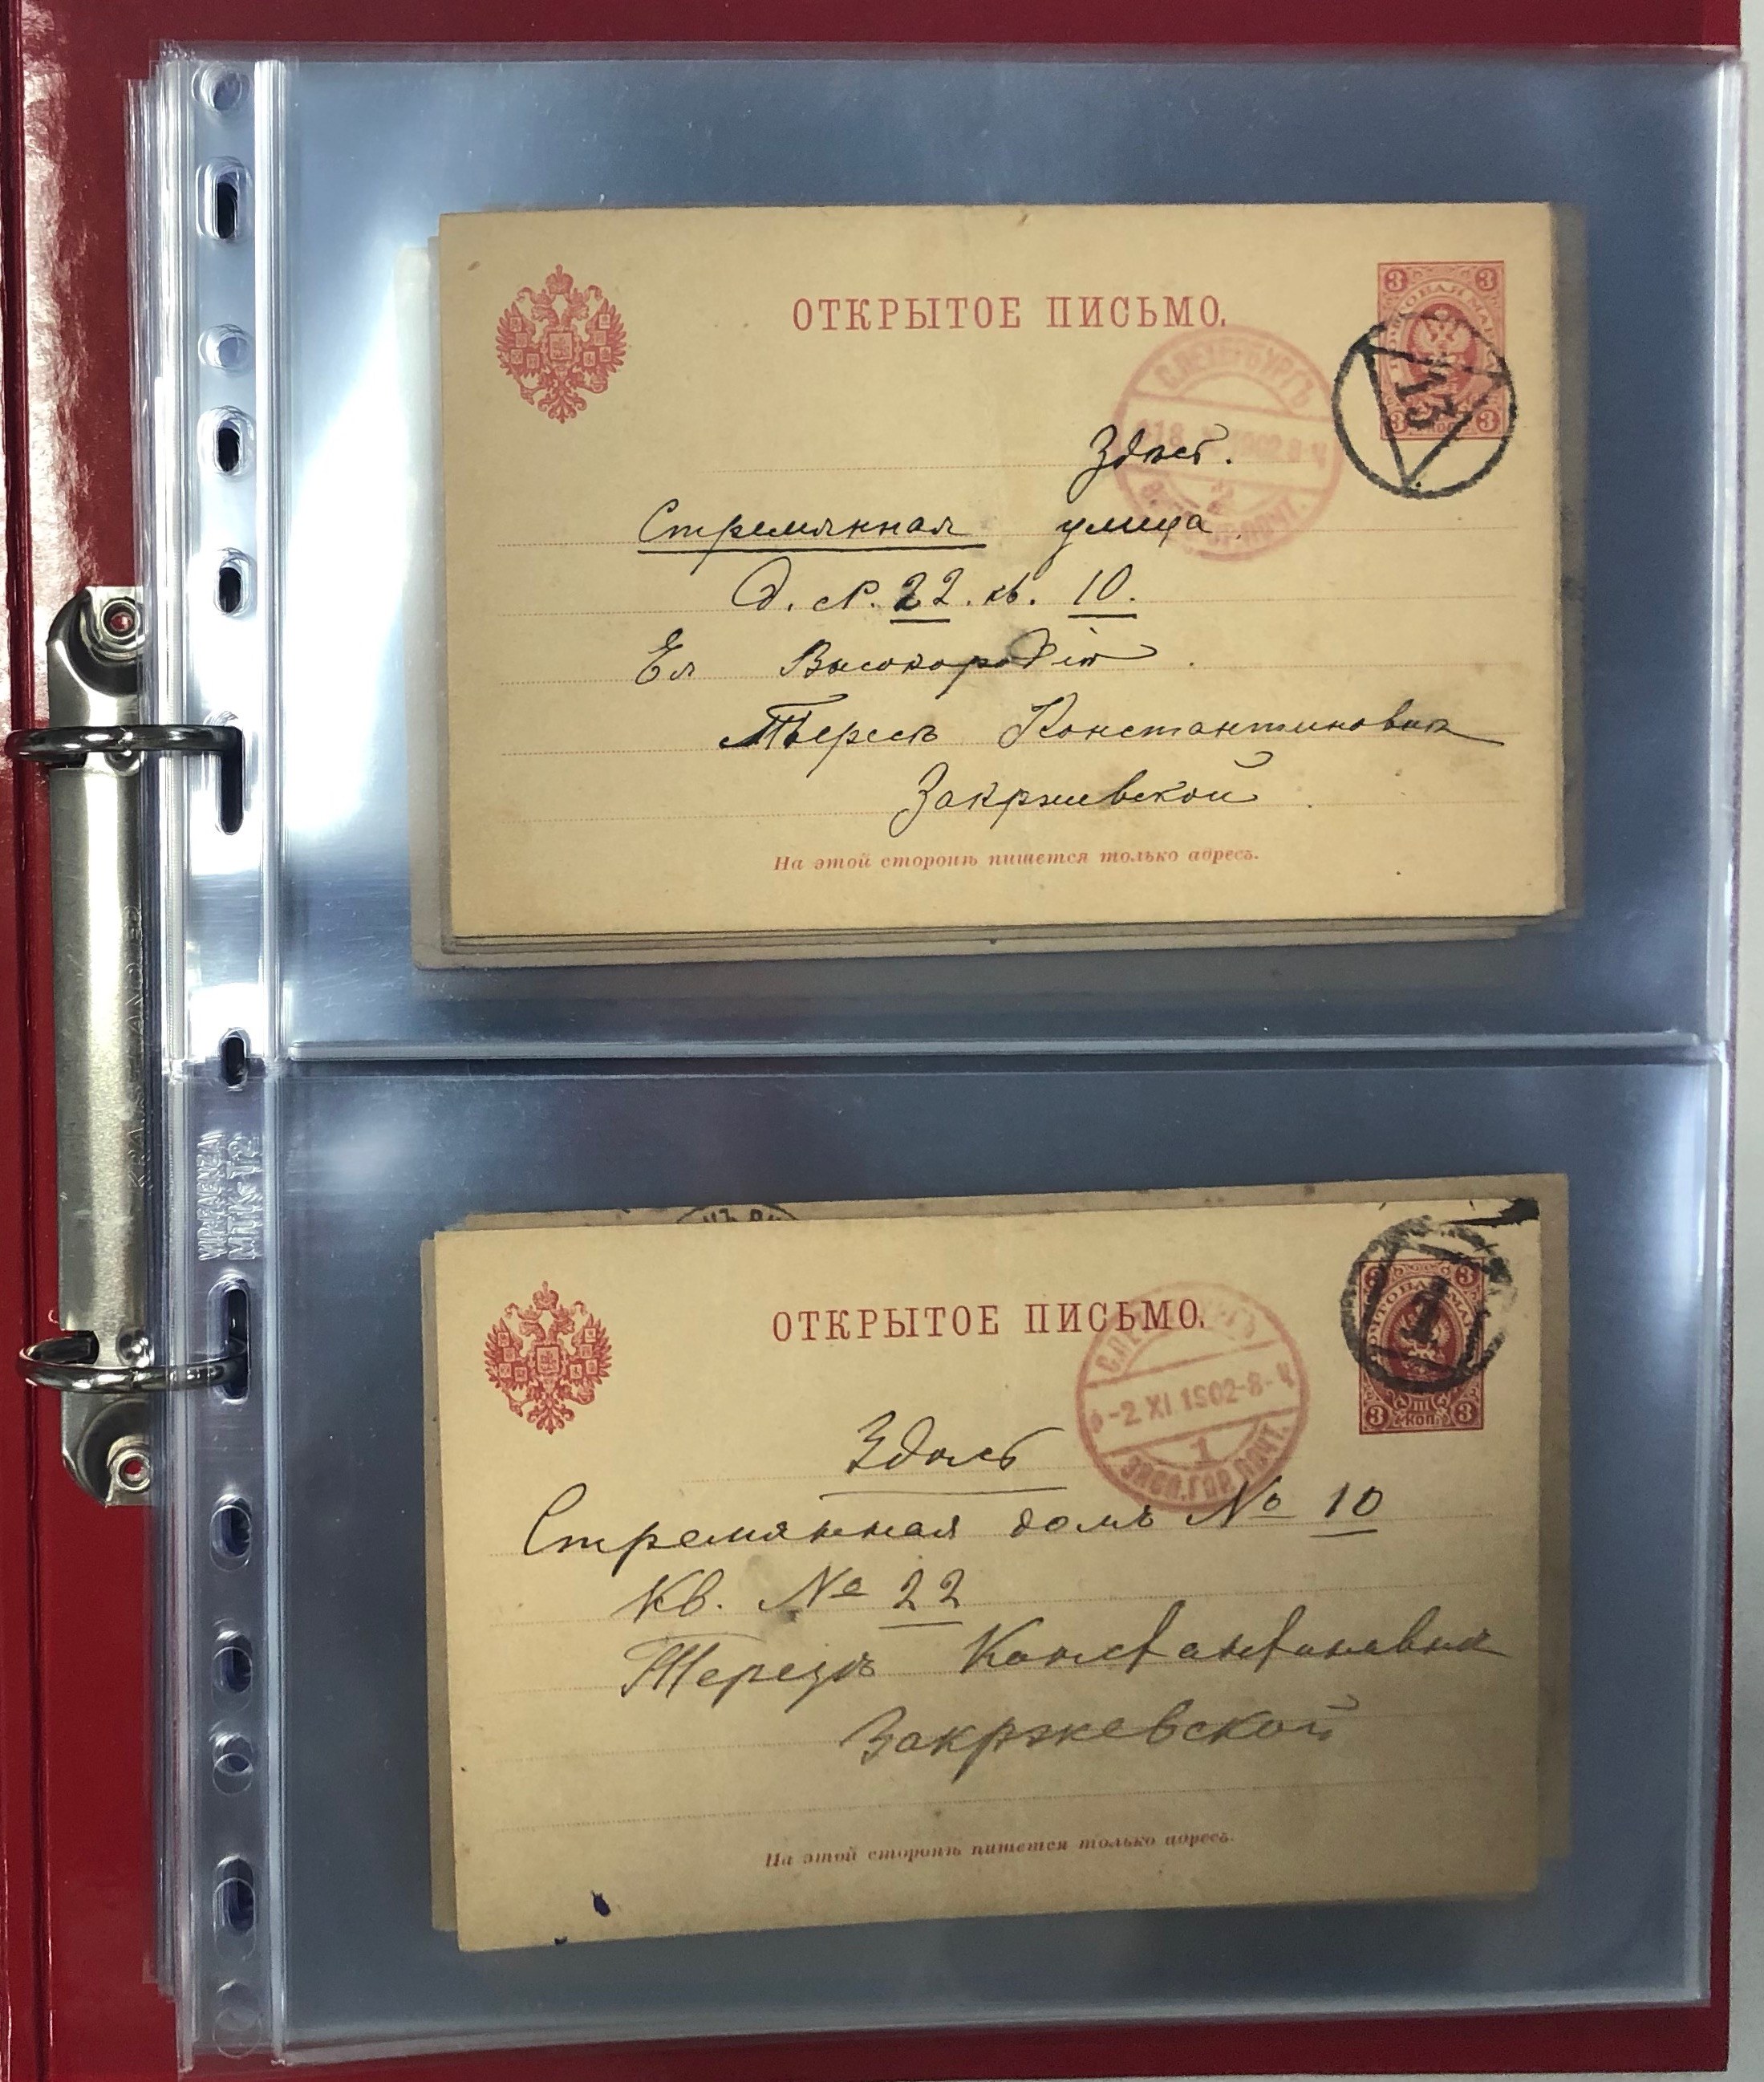 ОТКРЫТОЕ ПИСЬМО.
3 3
С.ПЕТЕРБУРГЪ
18 1902 8-Ч
2
13
Здѣсь.
Стремянная улица.
д. №. 22. кв. 10.
Ея Высокородію
Терезѣ Константиновнѣ
Закржевской
На этой сторонѣ пишется только адресъ.
ОТКРЫТОЕ ПИСЬМО.
3 КОП. 3
-2 XI.1902-8-Ч
1
ЭКСП.ГОР.ПОЧТ.
1
Здѣсь
Стремянная домъ № 10
Кв. № 22
Терезѣ Константиновнѣ
Закржевской
На этой сторонѣ пишется только адресъ.